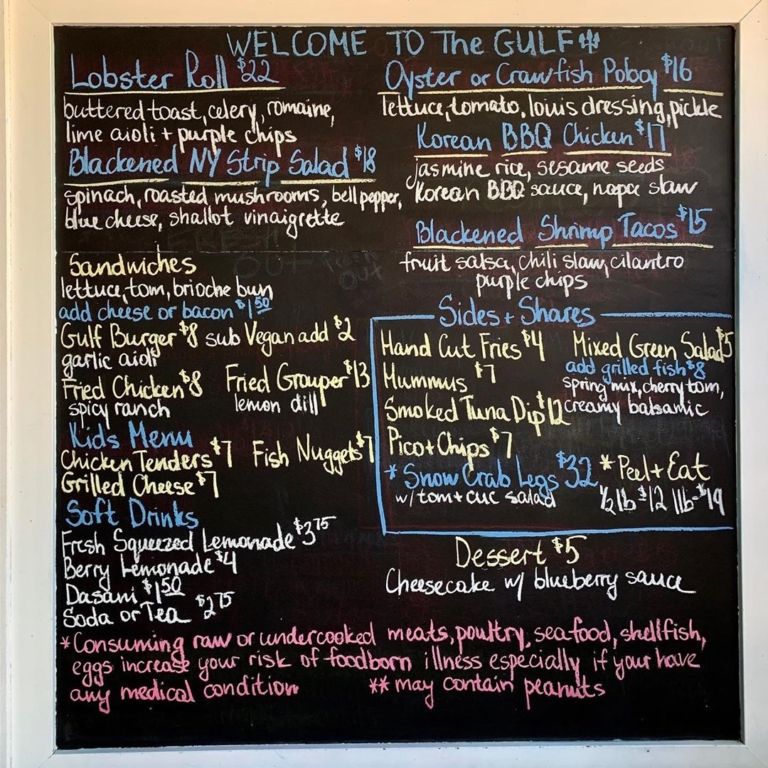 WELCOME TO The GULF
Lobster Roll $22
buttered toast, celery, romaine,
lime aioli + purple chips
Blackened NY Strip Salad $18
spinach, roasted mushrooms, bell pepper,
blue cheese, shallot vinaigrette
Oyster or Crawfish Poboy $16
lettuce, tomato, louis dressing, pickle
Korean BBQ Chicken $17
jasmine rice, sesame seeds
Korean BBQ sauce, napa slaw
Blackened Shrimp Tacos $15
fruit salsa, chili slaw, cilantro
purple chips
Sandwiches
lettuce, tom, brioche bun
add cheese or bacon $1.50
Gulf Burger $8 sub Vegan add $2
garlic aioli
Fried Chicken $8 Fried Grouper $13
spicy ranch lemon dill
Kids Menu
Chicken Tenders $7 Fish Nuggets $7
Grilled Cheese $7
Soft Drinks
Fresh Squeezed Lemonade $3.75
Berry Lemonade $4
Dasani $1.50
Soda or Tea $2.75
Sides + Shares
Hand Cut Fries $4
Hummus $7
Smoked Tuna Dip $12
Pico + Chips $7
* Snow Crab Legs $32
w/ tom + cuc salad
Mixed Green Salad $5
add grilled fish $8
spring mix, cherry tom,
creamy balsamic
* Peel + Eat
1/2 lb - $12 1 lb - $19
Dessert $5
Cheesecake w/ blueberry sauce
* Consuming raw or undercooked meats, poultry, seafood, shellfish,
eggs increase your risk of foodborn illness especially if your have
any medical condition ** may contain peanuts